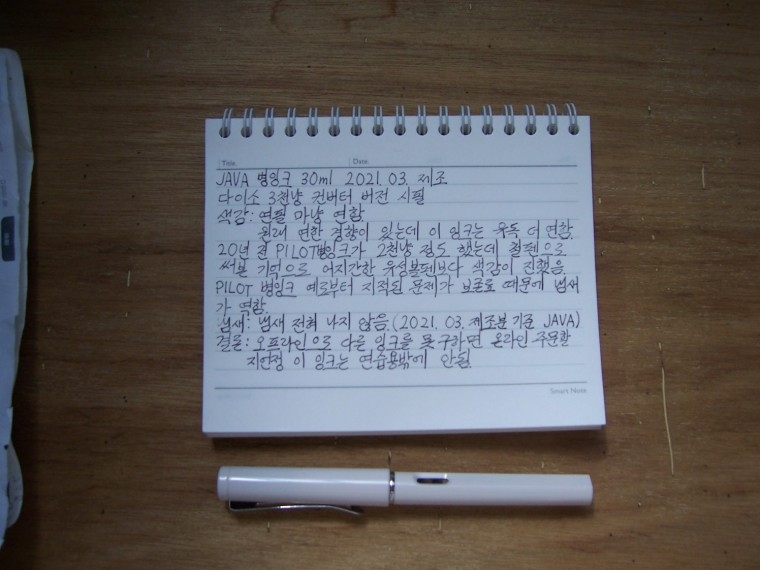 Title. Date.
JAVA 병잉크 30ml 2021. 03. 제조
다이소 3천냥 컨버터 버전 시필
색감: 연필 마냥 연함
원래 연한 경향이 있는데 이 잉크는 유독 더 연함.
20년 전 PILOT병잉크가 2천냥 정도 했는데 철펜으로
써본 기억으로 어지간한 유성볼펜보다 색감이 진했음.
PILOT 병잉크 예로부터 지적된 문제가 보존료 때문에 냄새
가 역함.
냄새: 냄새 전혀 나지 않음 (2021. 03. 제조분 기준 JAVA)
결론: 오프라인으로 다른 잉크를 못구하면 온라인 주문할
지언정 이 잉크는 연습용밖에 안됨
Smart Note